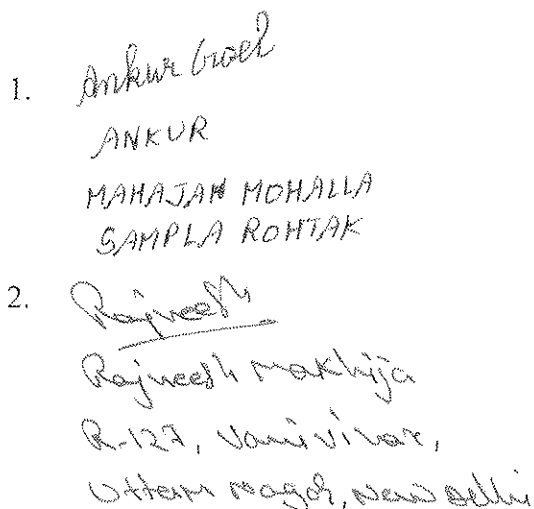 1. Ankur Goel
ANKUR
MAHAJAN MOHALLA
SAMPLA ROHTAK
2. Rajneesh
Rajneesh Makhija
R-127, Vani Vihar,
Uttam Nagar, New Delhi